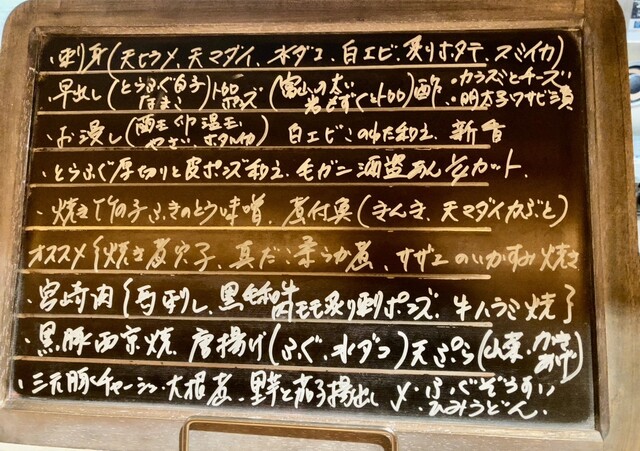 ・刺身(天ヒラメ、天マダイ、水ダコ、白エビ、炙りホタテ、スミイカ)
・早出し(とらふぐ白子 トロロ ポンズ (富山の太い 岩もずくとトロロ)酢 ・カラスミとチーズ ・明太子ワサビ漬
・お浸し( 温玉 やさい ホタルイカ) 白エビこのわた和え、新香
・とらふぐ厚切りと皮ポンズ和え、毛ガニ酒盗あん カット、
・焼き竹の子ふきのとう味噌、煮付魚(きんき、天マダイカブト)
オススメ{焼き煮穴子、真だこ柔らか煮、サザエのいかすみ焼き
・宮崎肉{馬刺し、黒毛和牛内モモ炙り刺ポンズ、牛ハラミ焼}
・黒豚西京焼、唐揚げ(ふぐ、水ダコ)天ぷら(山菜、かき あげ)
・三元豚チャーシュー・大根煮、里芋と茄子揚出し 〆・ふぐぞうすい ・ひみうどん、